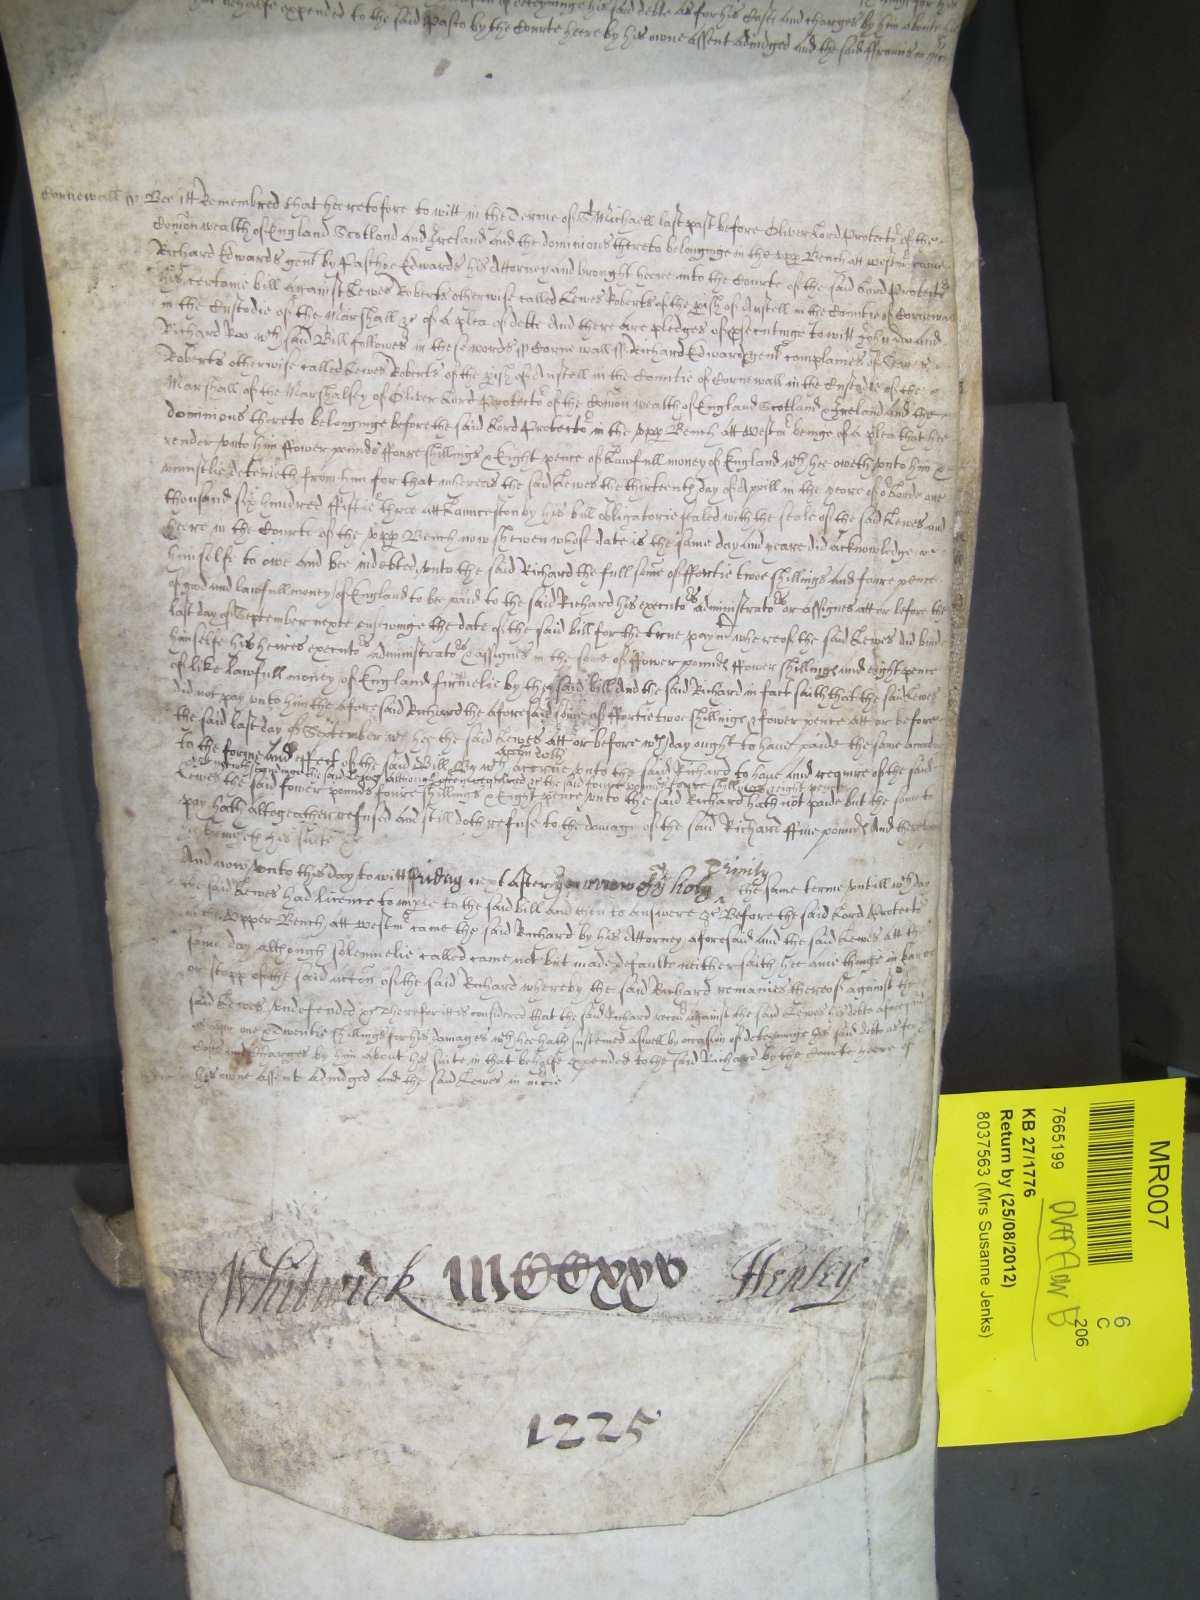 that behalfe expended to the said Pasco by the Courte heere by his owne assent adiudged and the said ffrauncis in
Cornewall ss Bee itt Remembred that heeretofore to witt in the Terme of St Michaell last past before Oliver Lord Protectr of the
Comon wealth of England Scotland and Ireland and the dominions thereto belonginge in the upp Bench att Westmr came
Richard Edwards gent by Paschoe Edwards his Attorney and brought heere into the Courte of the said Lord Protectr
his certaine bill against Lewes Roberts otherwise called Lewes Roberts of the pish of Austell in the Countie of Cornewall
in the Custodie of the Marshall &c of a plea of debte And there are pledges of psecutinge to witt John Doo and
Richard Roo wch said Bill followes in these words ss Cornewall ss Richard Edwards gent complaines of Lewes
Roberts otherwise called Lewes Roberts of the pish of Austell in the Countie of Cornewall in the Custodie of the
Marshall of the Marshalsey of Oliver Lord Protectr of the Comon wealth of England Scotland & Ireland and the
dominions thereto belonginge before the said Lord Protectr in the upp Bench att Westmr beinge of a plea that hee
render unto him ffower pounds ffoure shillings & Eight pence of Lawfull money of England wch hee oweth unto him &
uniustlie deteineth from him for that whereas the said Lewes the thirteenth day of Aprill in the yeere of or Lorde one
thousand six hundred ffiftie three att Launceston by his bill obligatorie sealed with the seale of the said Lewes and
heere in the Courte of the upp Bench now shewen whose date is the same day and yeare did acknowledge
himselfe to owe and bee indebted unto the said Richard the full some of ffortie twoe shillings and foure pence
of good and lawfull money of England to bee paid to the said Richard his executors administrators or assignes att or before the
last day of September nexte ensewinge the date of the said bill for the true paymt whereof the said Lewes did binde
himselfe his heires executors administrators & assignes in the some of ffower pounds ffower shillings and eight pence
of like Lawfull money of England firmelie by the said bill And the said Richard in fact saith that the said Lewes
did not pay unto him the aforesaid Richard the aforesaid some of ffortie twoe shillings & fower pence att or before
the said last day of September wch hee the said Lewes att or before wch day ought to have paide the same accordinge
to the forme and effect of the said Bill By wch accion accrue unto the said Richard to have and require of the said
Lewes the said fower pounds foure shillings & Eight pence
Lewes the said fower pounds foure shillings & Eight pence unto the said Richard hath not paide but the same to
pay hath altogeather refused and still doth refuse to the damage of the said Richard ffive pounds And thereupon
hee bringeth his suite &c
And now unto this day to witt ffriday next after ye morrow of ye holy Trinity the same terme untill wch day
the said Lewes had licence to imple to the said bill and then to answere &c Before the said Lord Protectr
Upper Bench att Westmr came the said Richard by his Attorney aforesaid And the said Lewes att the
same day although solemnelie called came not but made defaulte neither saith hee anie thinge in barre
or stopp of the said accon of the said Richard whereby the said Richard remaines thereof against the
said Lewes undefended &c Therefore itt is considered that the said Richard recovr against the said Lewes his debte aforesaid
one & Twentie shillings for his damages wch hee hath susteined aswell by occasion of deteyninge his said debte as for
Costs and Charges by him about his suite in that behalfe expended to the said Richard by the Courte heere of
his owne assent adiudged And the said Lewes in mcie
Whitwick MCCxxv Henley
1225
MR007
7665199
KB 27/1776
Return by (25/08/2012)
8037563 (Mrs Susanne Jenks)
6
C
206